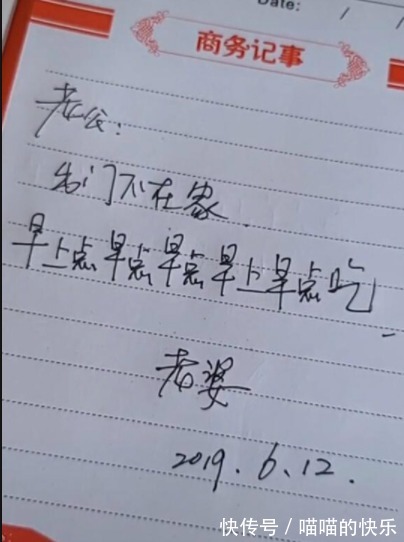 Date: / /
商务记事
老公：
出门不在家.
早上点早点早点早上早点吃
老婆
2019.6.12.
快传号／喵喵的快乐